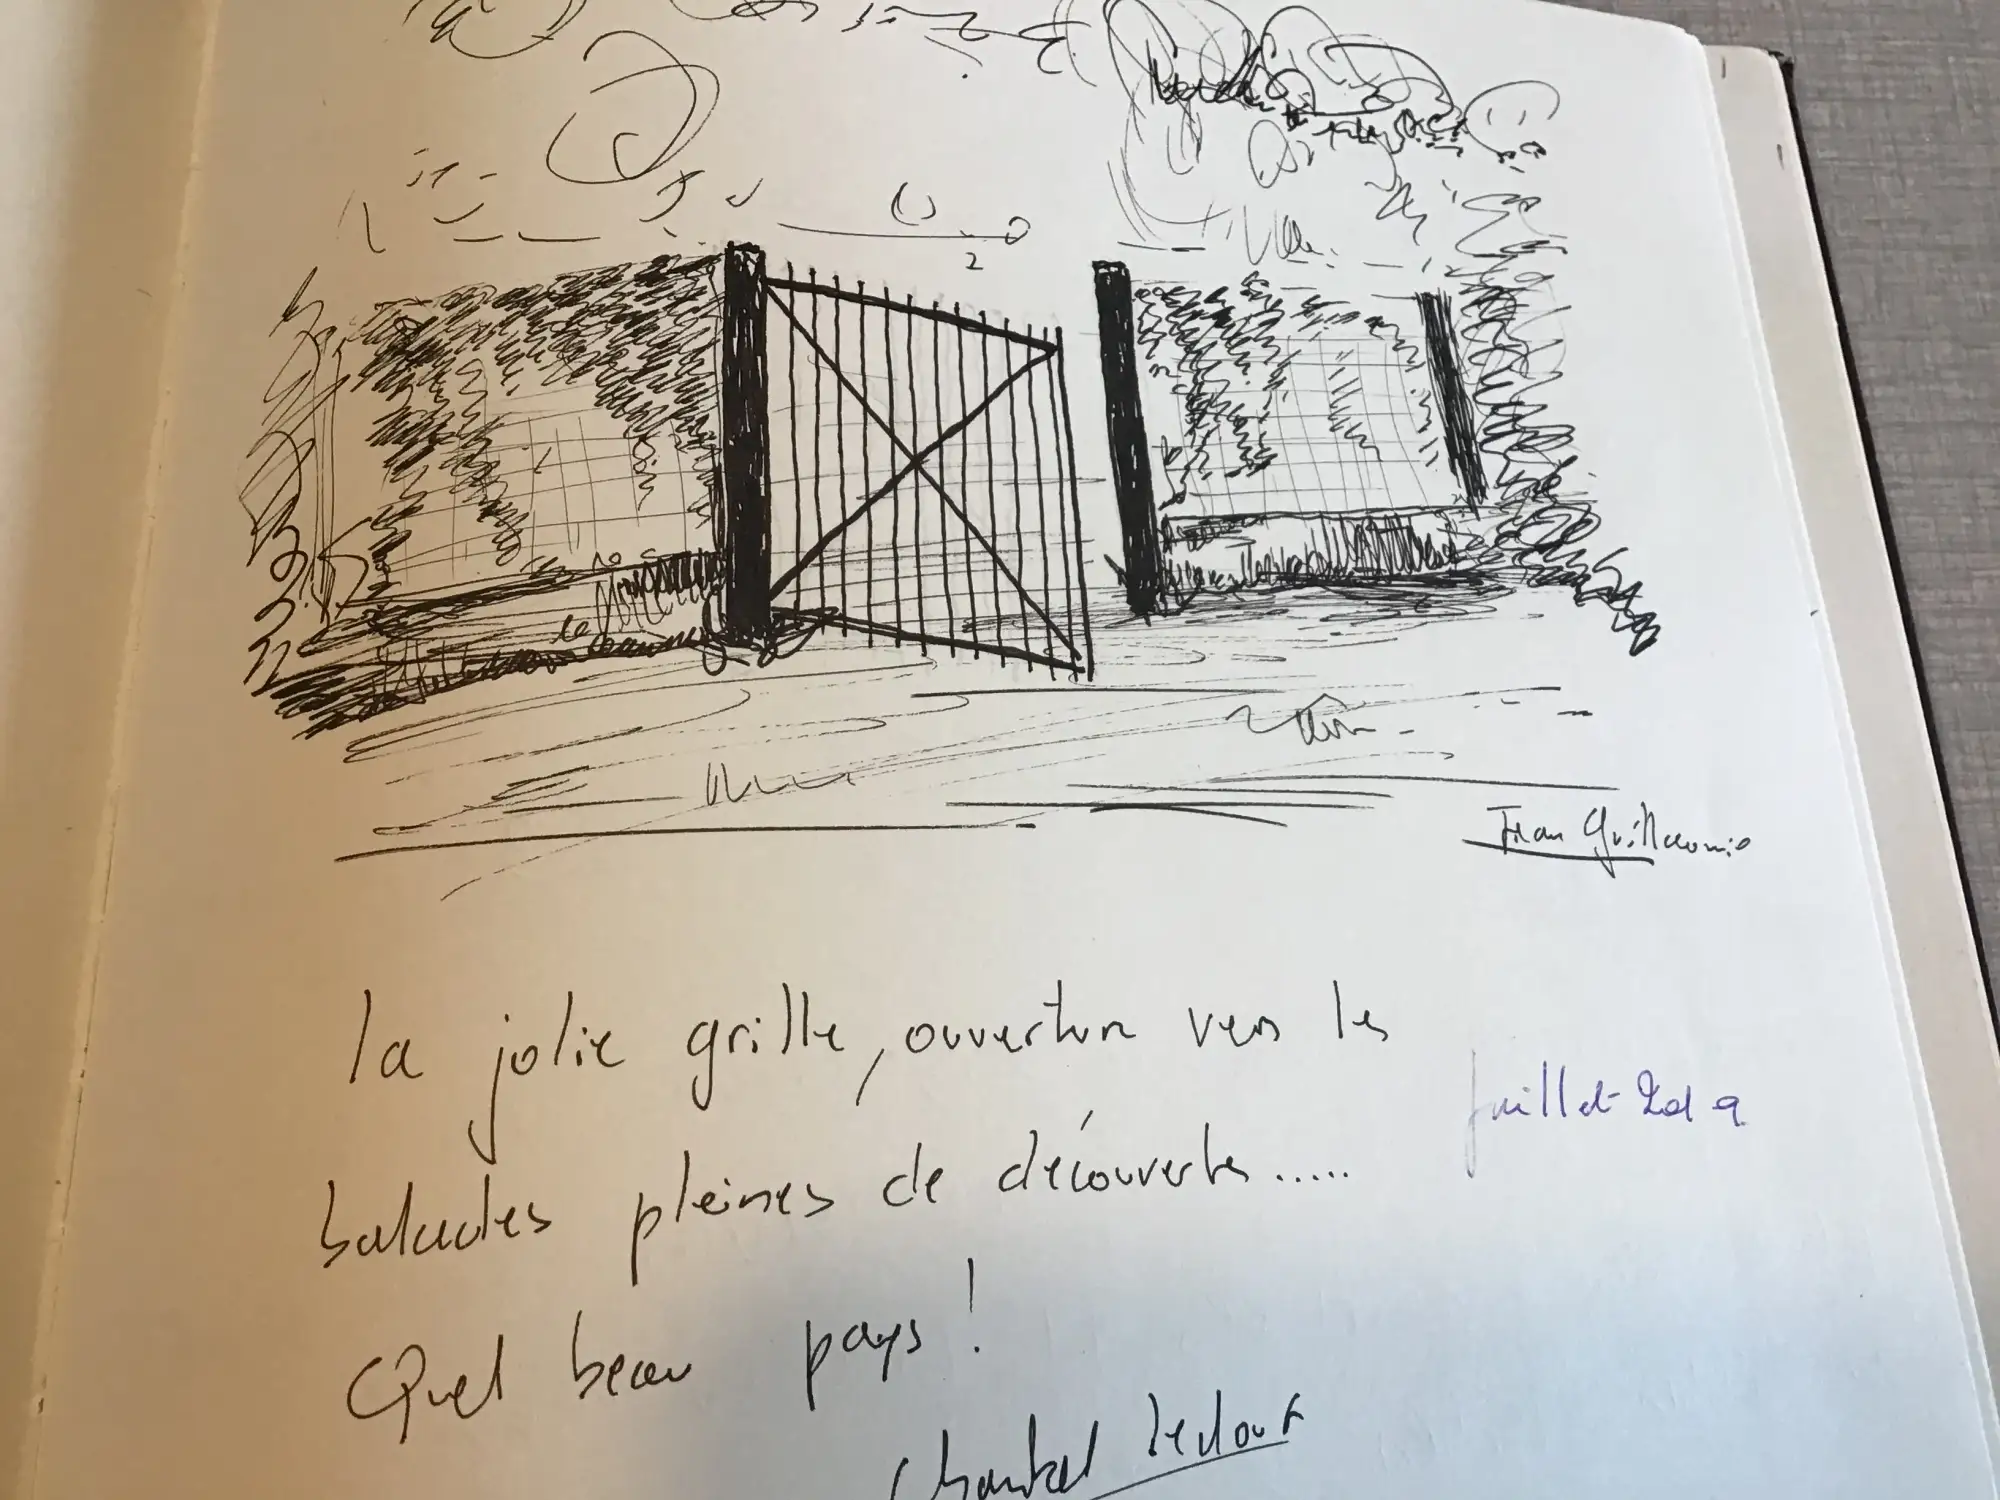 Jean Guillaumie
la jolie grille, ouverture vers les
Juillet 2019
balades pleines de découvertes.....
Quel beau pays !
Chantal Ledout